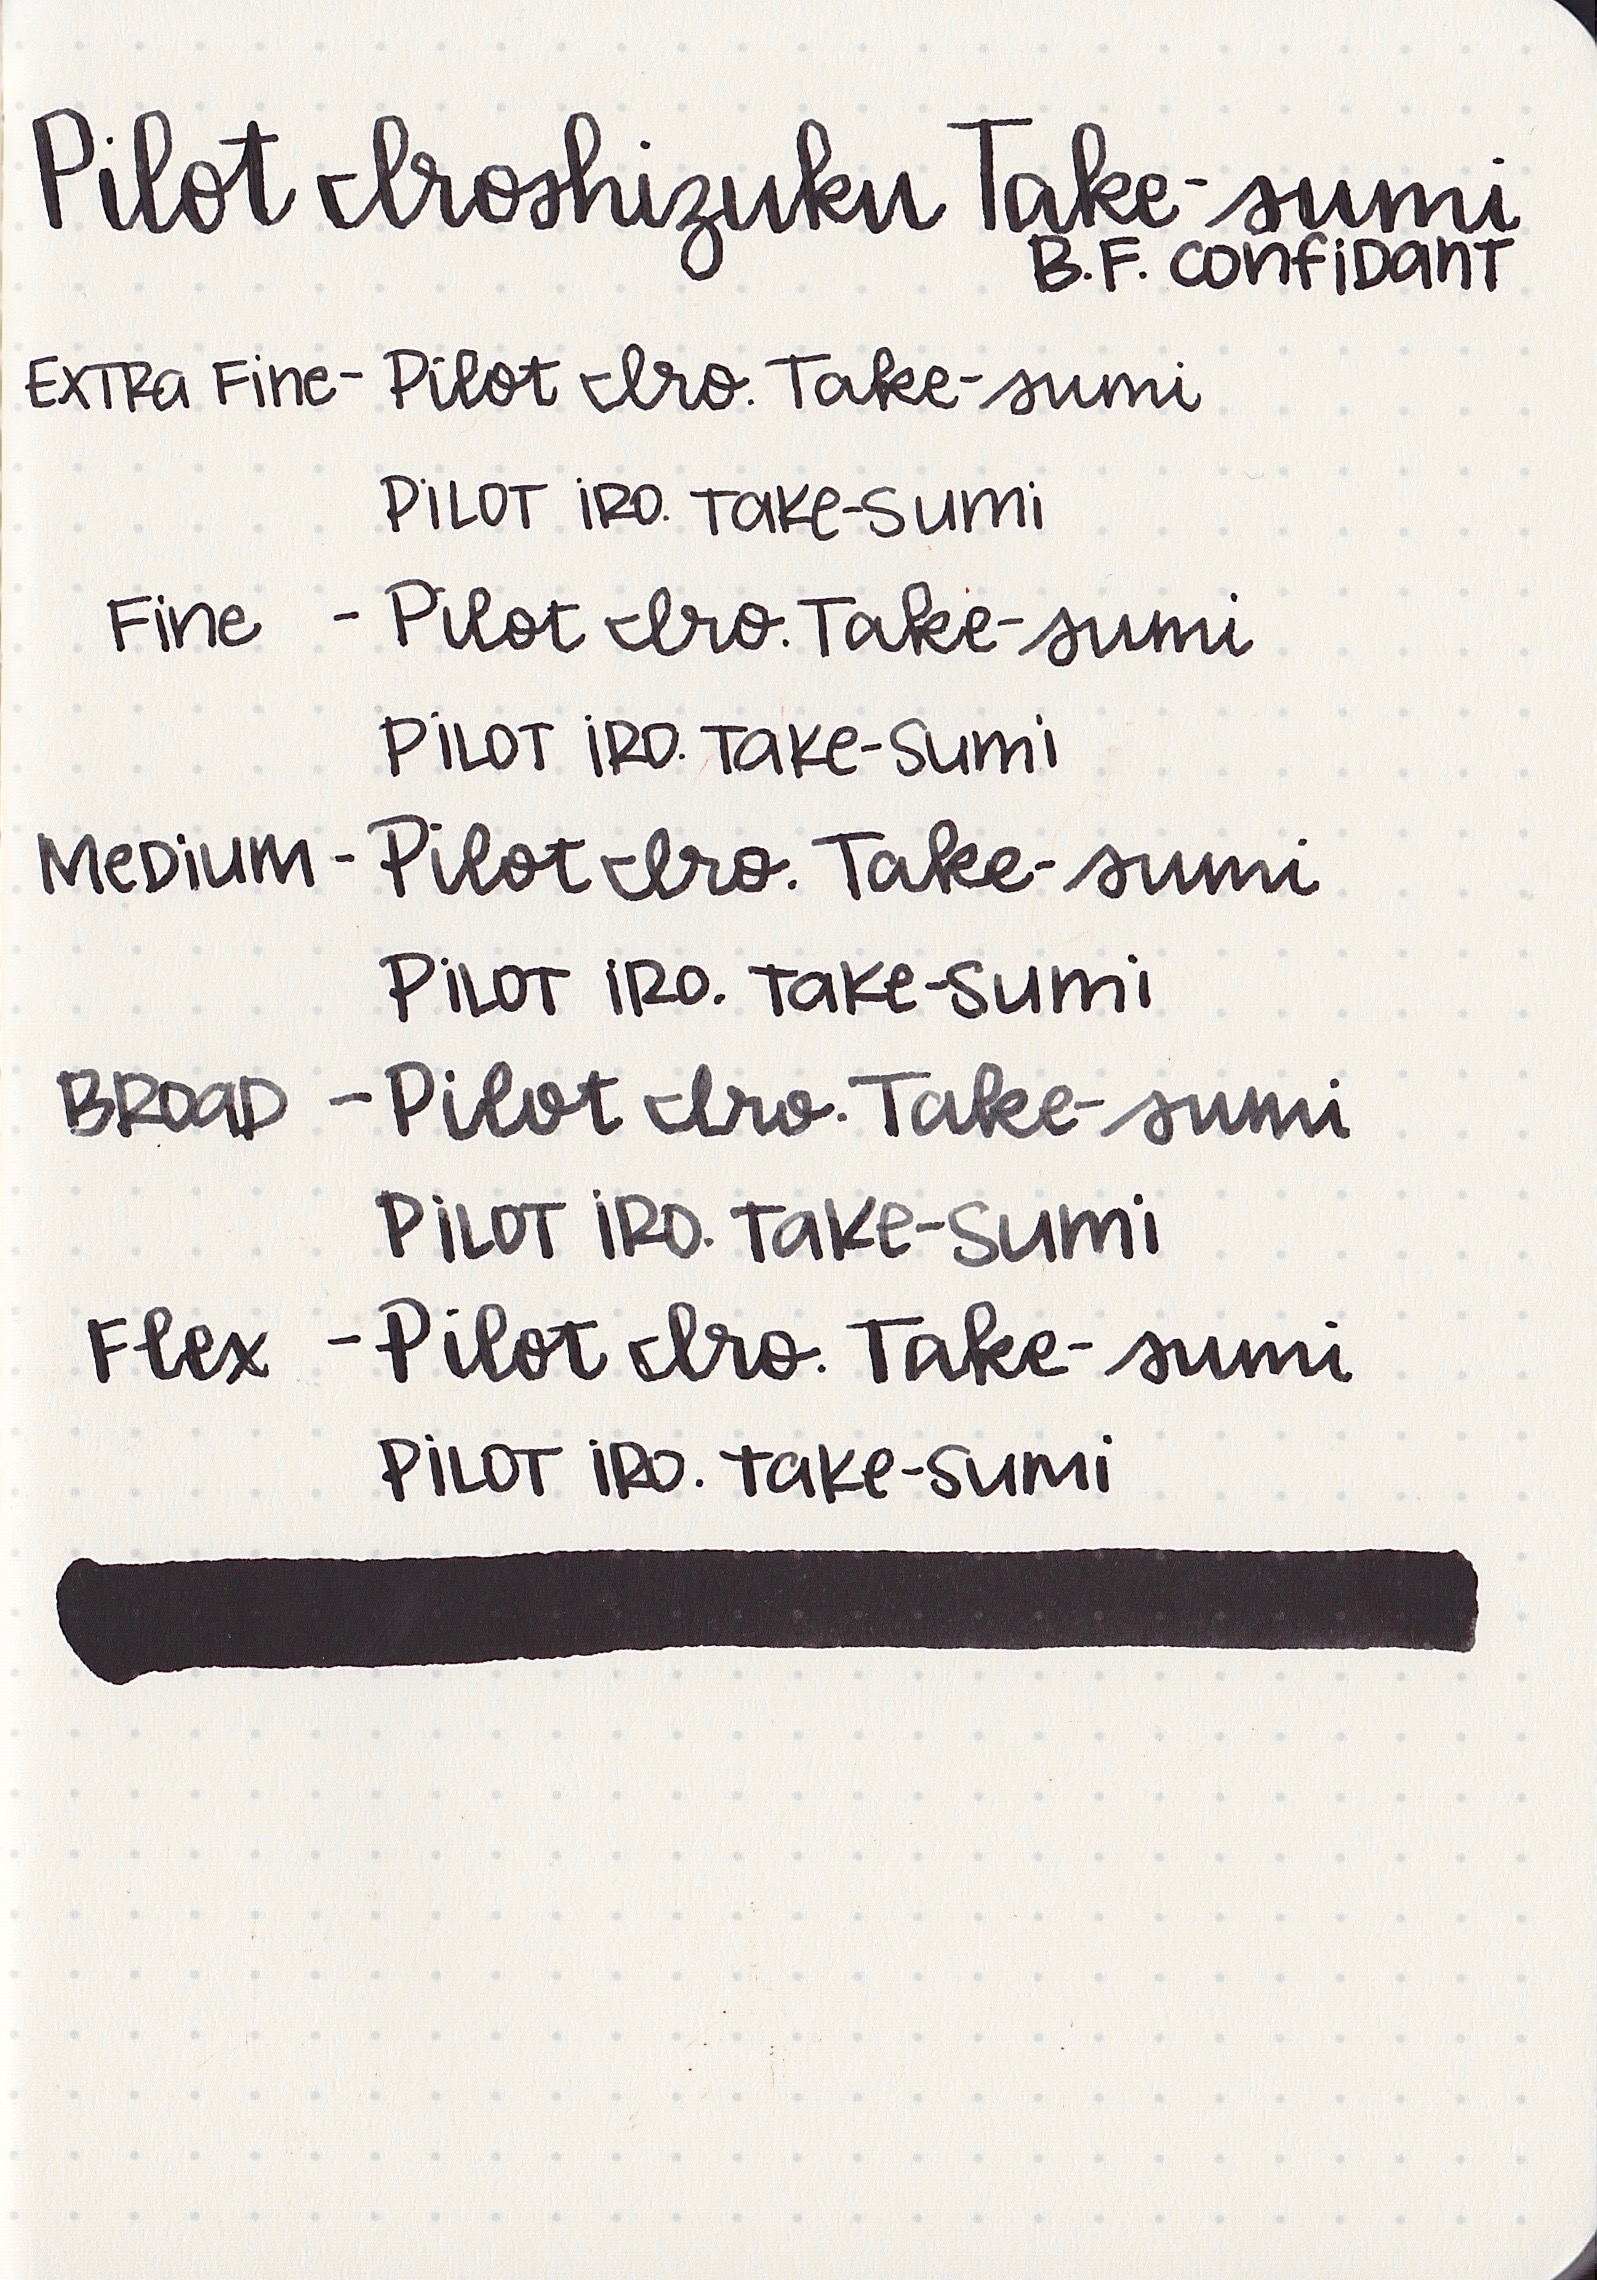 Pilot Iroshizuku Take-sumi
B.F. Confidant
Extra Fine - Pilot Iro. Take-sumi
PiLOT iRO. Take-Sumi
Fine - Pilot Iro. Take-sumi
PiLOT iRO. Take-Sumi
Medium - Pilot Iro. Take-sumi
PiLOT iRO. Take-Sumi
Broad - Pilot Iro. Take-sumi
PiLOT iRO. Take-Sumi
Flex - Pilot Iro. Take-sumi
PiLOT iRO. Take-Sumi